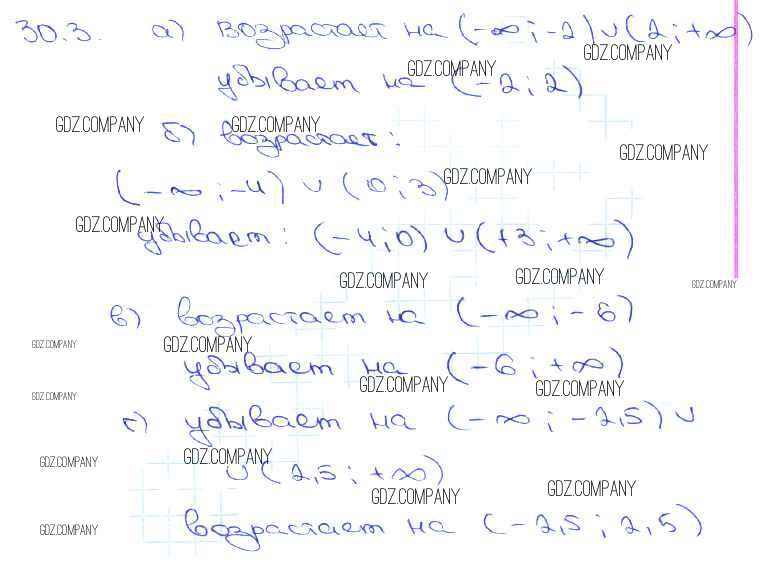 30.3. а) возрастает на (-∞; -2) ∪ (2; +∞)
GDZ.COMPANY
убывает на (-2; 2)
GDZ.COMPANY
GDZ.COMPANY б) возрастает:
GDZ.COMPANY
GDZ.COMPANY
(-∞; -4) ∪ (0; 3)
GDZ.COMPANY
GDZ.COMPANY
убывает: (-4; 0) ∪ (+3; +∞)
GDZ.COMPANY GDZ.COMPANY GDZ.COMPANY
в) возрастает на (-∞; -6)
GDZ.COMPANY GDZ.COMPANY
убывает на (-6; +∞)
GDZ.COMPANY GDZ.COMPANY GDZ.COMPANY
г) убывает на (-∞; -2,5) ∪
GDZ.COMPANY GDZ.COMPANY
∪ (2,5; +∞)
GDZ.COMPANY GDZ.COMPANY
возрастает на (-2,5; 2,5)
GDZ.COMPANY